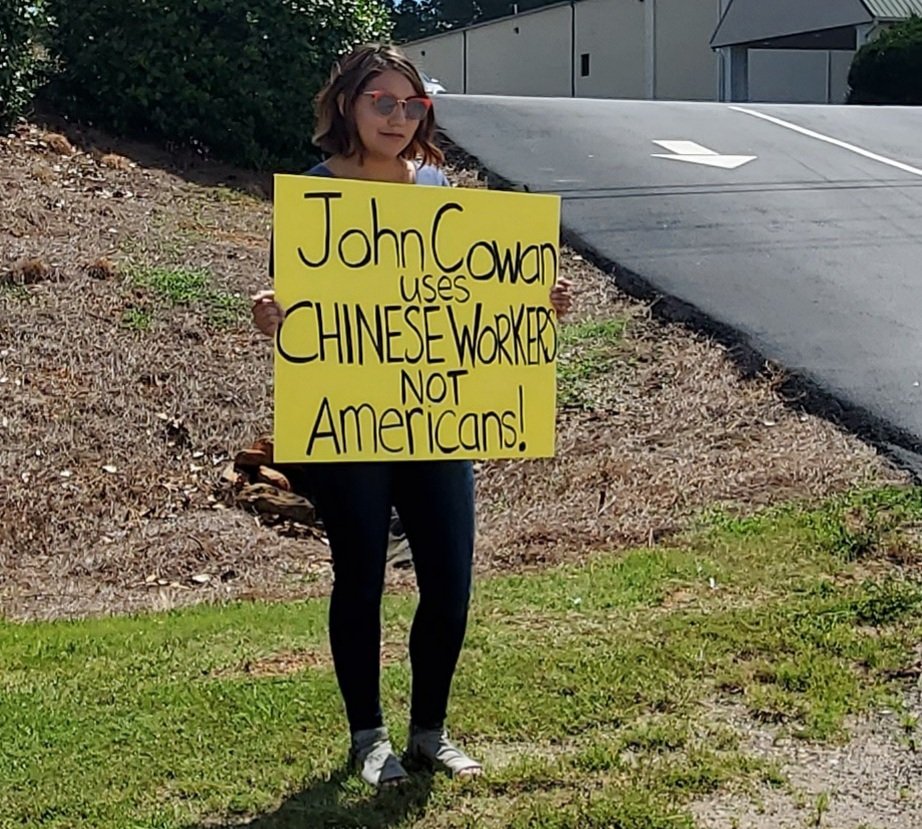 John Cowan
uses
CHINESE WORKERS
NOT
Americans!